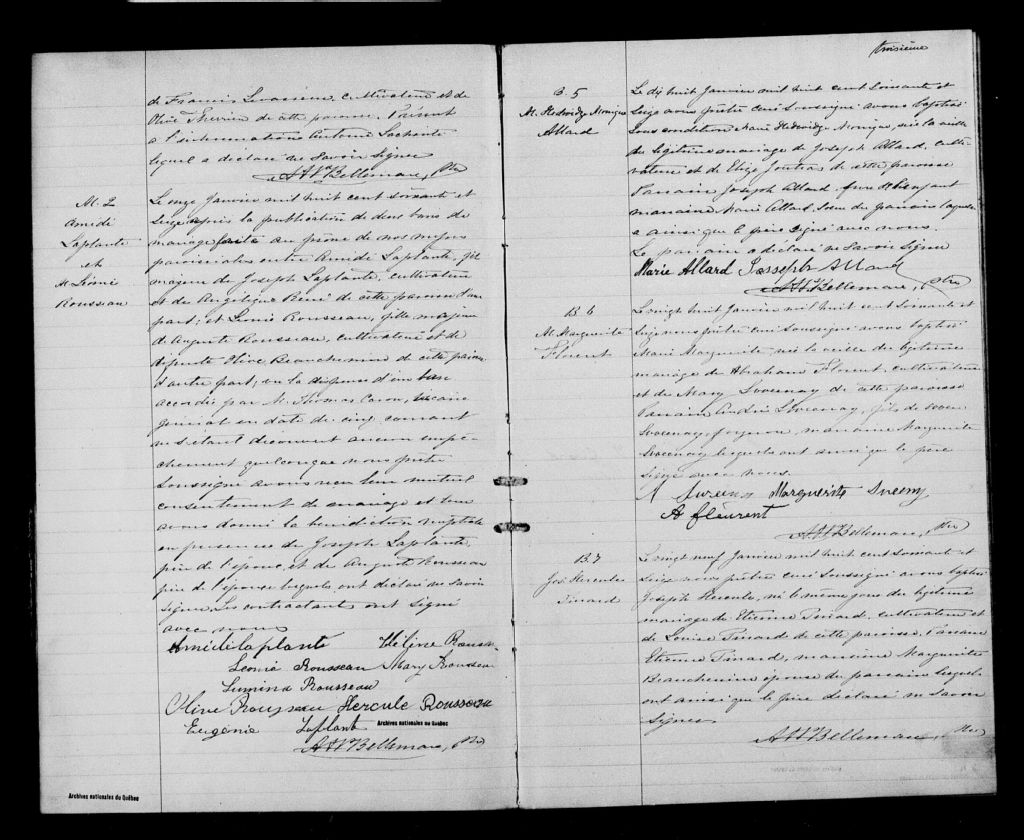 de Francis Levasseur, cultivateur et de
Olive Therrien de cette paroisse. Présent
a l'inhumation Antoine Lachaite
lequel a déclaré ne savoir signer
A.W. Bellemare, Ptre
M. 2
Amédé
Laplante
et
M. Léonie
Rousseau
Le onze Janvier mil huit cent soixante et
seize après la publication de deux bans de
mariage faite au prône de nos messes
paroissiales entre Amédé Laplante, fils
majeur de Joseph Laplante, cultivateur
et de Angélique René de cette paroisse d'une
part; et Léonie Rousseau, fille majeure
de Auguste Rousseau, cultivateur et de
défunte Olive Beauchemine de cette paroisse
d'autre part; vu la dispense d'un ban
accordée par M. Thomas Caron, vicaire
général en date du cinq courant
ne s'étant découvert aucun empê-
chement quelconque nous prêtre
soussigné avons reçu leur mutuel
consentement de mariage et leur
avons donné la bénédiction nuptiale
en présence de Joseph Laplante
père de l'époux, et de Auguste Rousseau
père de l'épouse lesquels ont déclaré ne savoir
signer. Les contractants ont signé
avec nous
Amédé Laplante Hélène Rouss.
Leonie Rousseau Mary Rousseau
Lumina Rousseau
Olive Rousseau Hercule Rousseau
Eugenie Laplant
Archives nationales du Québec
A.W. Bellemare, Ptre
Archives nationales du Québec
troisième
B. 5
M. Hedwidge Monique
Allard
Le dix huit Janvier mil huit cent soixante et
seize nous prêtre curé soussigné avons baptisé
sous condition Marie Hedwidge Monique, née la veille
du légitime mariage de Joseph Allard, culti-
vateur et de Elize Joutras de cette paroisse
Parrain Joseph Allard frère de l'enfant
marraine Marie Allard, soeur du parrain laquelle
a ainsi que le père signé avec nous.
Le parrain a déclaré ne savoir signer
Marie Allard Jasseph Allard
A.W. Bellemare, Ptre
B. 6
M. Marguerite
Florent
Le vingt huit Janvier mil huit cent soixante et
seize nous prêtre curé soussigné avons baptisé
Marie Marguerite née la veille du légitime
mariage de Abraham Florent, cultivateur
et de Mary de cette paroisse
Parrain André fils de
forgeron, marraine Marguerite
lesquels ont ainsi que le père
signé avec nous.
A Marguerite
A fleurent
A.W. Bellemare, Ptre
B. 7
Jos. Hercule
Pinard
Le vingt neuf Janvier mil huit cent soixante et
seize nous prêtre curé soussigné avons baptisé
Joseph Hercule, né le même jour du légitime
mariage de Etienne Pinard, cultivateur et
de Louise Pinard de cette paroisse. Parrain
Etienne Pinard, marraine Marguerite
Beauchemine épouse du parrain lesquels
ont ainsi que le père déclaré ne savoir
signer
A.W. Bellemare, Ptre